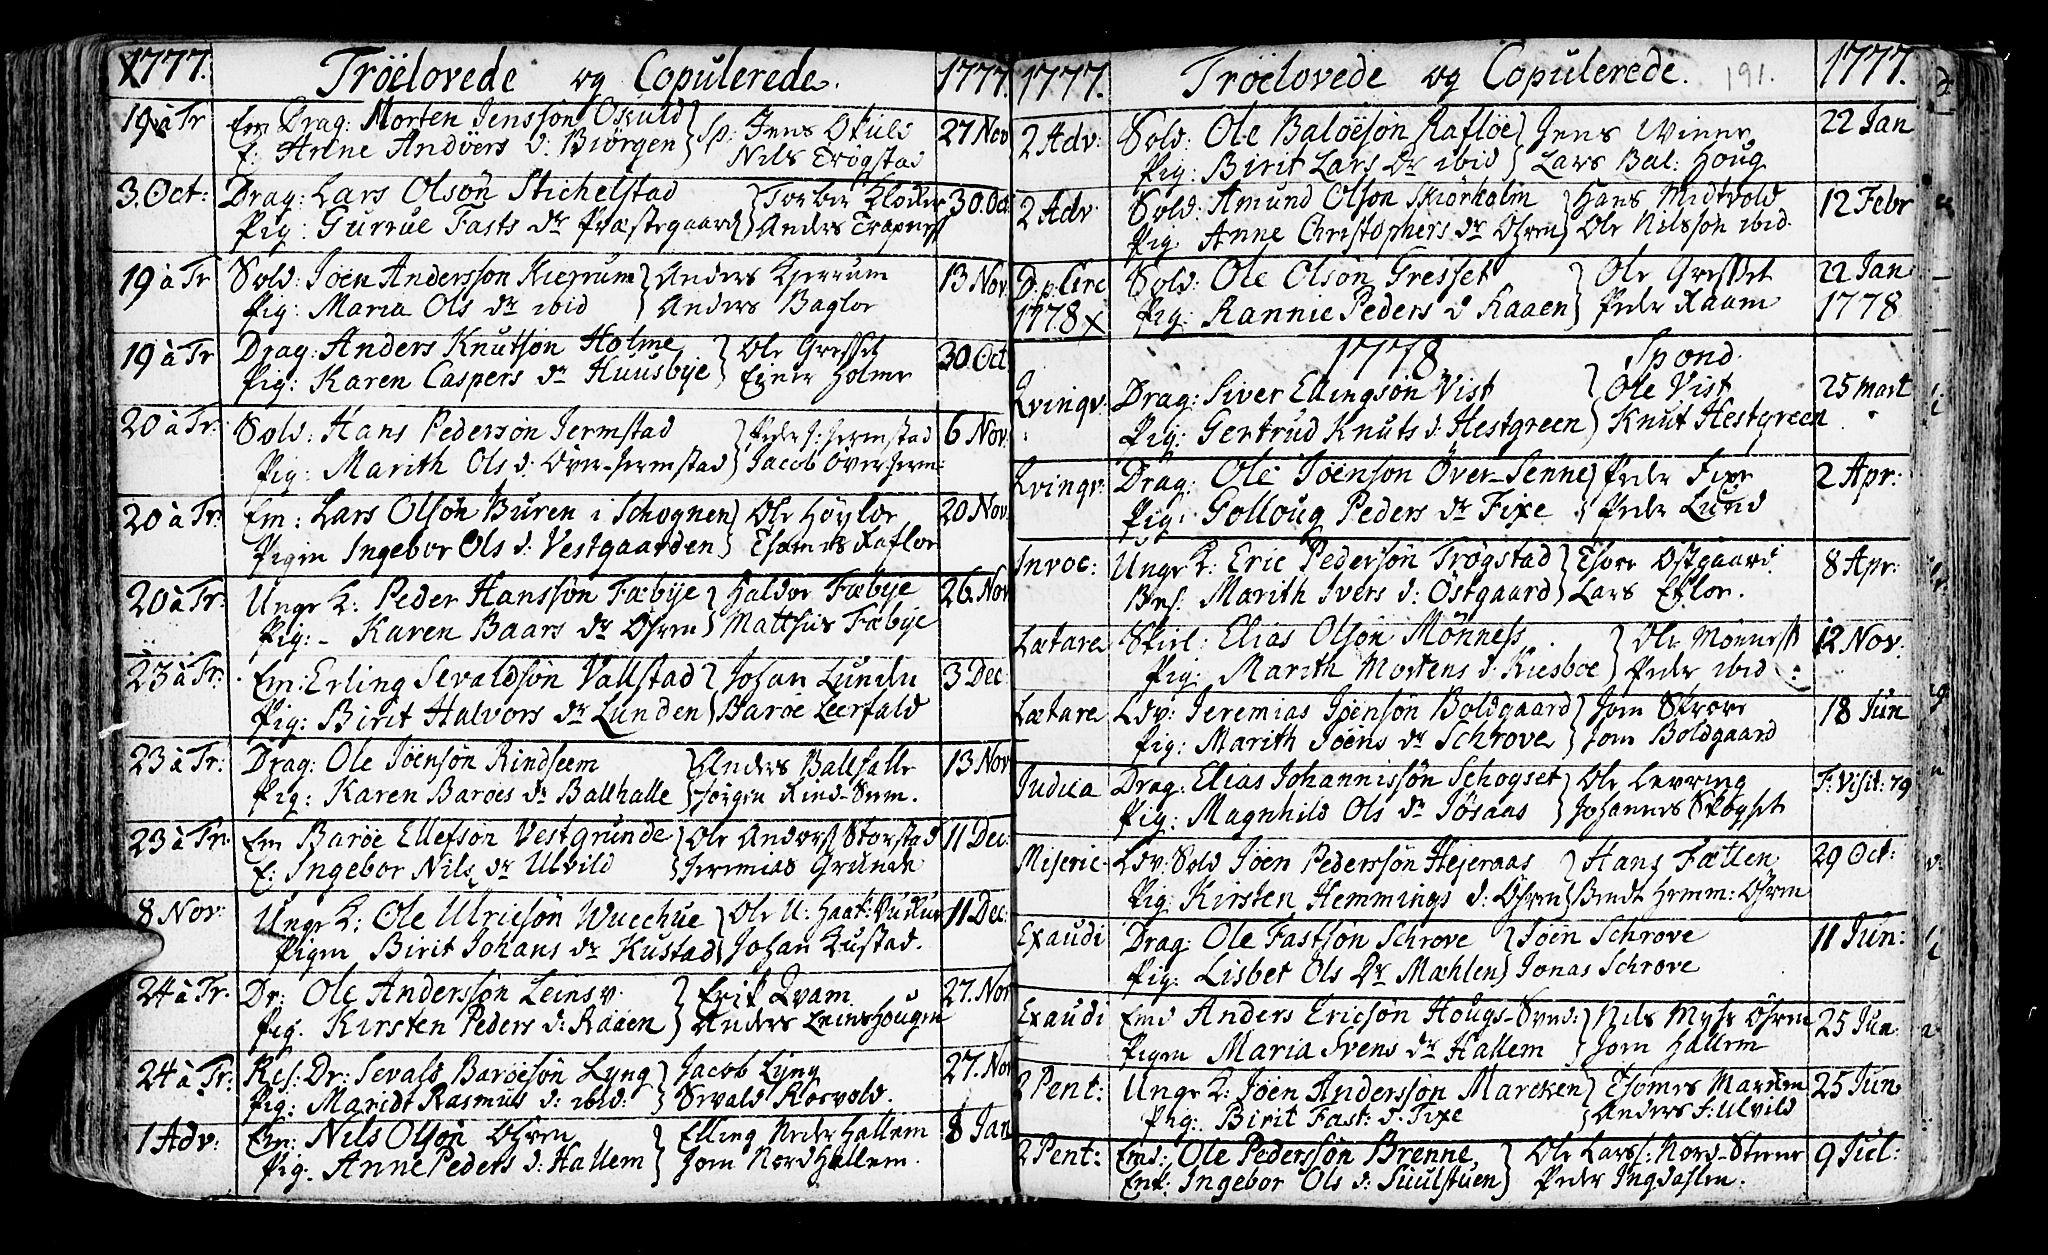 1777. Tröelovede og Copulerede. 1777.
19 à Tr Em Drag: Morten Jensson Oskuld } Sp: Jens Okuls 27 Nov
E: Anne Andöers D: Biörgen } Nils Trögstad
3. Oct: Drag: Lars Olson Stichelstad } Torber Klocker 30. Oct
Pig: Gurrue Fasts dr Præstegaard } Anders Trapness
19 à Tr Sold: Joen Andersson Kierrum } Anders Kierrum 13 Nov.
Pig: Maria Ols dr ibid } Anders Bagloe
19 à Tr Drag: Anders Knutson Holme } Ole Gresset 30 Oct
Pig: Karen Caspers dr Huusbye } Ejner Holme
20 à Tr: Sold: Hans Pederson Jermstad } Peder J: Jermstad 6 Nov:
Pig: Marith Ols d: Över-Jermstad } Jacob Överjerm:
20 à Tr: Em: Lars Olson Buren i Schognen } Ole Höyloe 20 Nov.
Pigen Ingebor Ols d: Vestgaarden } Thomas Rafloe
20 à Tr: Unge K: Peder Hansson Fæbye } Haldor Fæbye 26. Nov
Pig: - Karen Baars dr Öhren } Matthis Fæbye
23 à Tr: Em: Erling Sevaldson Vallstad } Johan Lunden 3 Dec
Pig: Birit Halvors dr Lunden } Baroe Leerfald
23 à Tr: Drag: Ole Joenson Rindseem } Anders Balhalle 13 Nov
Pig: Karen Baroes dr Balhalle } Jörgen Rind-Sem.
23 à Tr. Em Baröe Ellefson Vestgrunde } Ole Anders: Storstad 11 Dec:
E: Ingebor Nils dr Ulvild } Jeremias Grunde
8 Nov: Unge K: Ole Ulricson Wucchue } Ole U: Haak: Vukue 11 Dec:
Pigen Birit Johans dr Kustad } Johan Kustad.
24 à Tr. Dr: Ole Andersson Leinsv. } Erik Qvam 27. Nov
Pig. Kirsten Peders d: Raaen } Anders Leinshougen
24 à Tr: Res: Dr: Sevald Baröeson Lyng } Jacob Lyng 27. Nov
Pig: Maridt Rasmus d: ibid: } Sevald Rosvold.
1 Adv: Em: Nils Olson Öhren } Elling Nederhallem 8 Jan
Pig. Anne Peders d: Hallem } Jom Nordhallem.
1777. Tröelovede og Copulerede. 191. 1777.
2 Adv: Sold: Ole Balöeson Rafloe } Jens Winne 22 Jan
Pig: Birit Lars Dr ibid } Lars Bal: Houg
2 Adv Sold: Amund Olson Skiörholm } Hans Midtvold 12 Febr
Pig. Anne Christophers dr Öhren } Ole Nilsson ibid.
D. p. Circ Sold: Ole Olson Gresset } Ole Gresset 22 Jan
1778 x Pig: Rannie Peders d Raaen } Peder Raaen 1778
1778 Spond.
Qvinqv: Drag: Siver Ellingson Vist } Ole Vist 25 Mart
Pig: Gertrud Knuts d: Hestgreen } Knut Hestgreen
Qvinqv: Drag: Ole Joenson Över-Senne } Peder Fixe 2 Apr:
Pig: Golloug Peders dr Fixe } Peder Lund
Invoc: Unge K: Eric Pederson Trögstad } Thore Östgaard 8 Apr:
Bes: Marith Ivers d: Östgaard } Lars Efloe.
Lætare Skirl: Elias Olson Mönness } Ole Mönness 12 Nov:
Pig: Marith Mortens d: Kiesboe } Peder ibid
Lætare Ldv: Jeremias Joenson Boldgaard } Jom Skrove 18 Jun
Pig: Marith Joens dr Schrove } Jom Boldgaard
Judica Drag: Elias Johannisson Schogset } Ole Levring F: Visit: 79
Pig: Magnhild Ols dr Jösaas } Johannes Skogset
Miseric- Ldv: Sold Joen Pederson Hejeraas } Hans Fætten 29 Oct:
Pig: Kirsten Hemmings d: Öhren } Bendt Hemm: Öhren
Exaudi Drag: Ole Fastson Schrove } Joen Schrove 11 Jun:
Pig: Lisbet Ols Dr Mæhlen } Jonas Schrove
Exaudi Emd Anders Ericson Hougs-Synd: } Nils Myhr Öhren 25 Jun
Pigen Maria Svens dr Hallem } Jom Hallem
2 Pent: Unge K: Joen Andersson Marcken } Thomes Marken 25 Jun
Pig: Birit Fast: d: Fixe } Anders S: Ulvild
2 Pent: Emd: Ole Pederson Brenne } Ole Lars: Nord-Steene 9 Jul:
Enk: Ingebor Ols d: Suulstuen } Peder Ingdahlen.